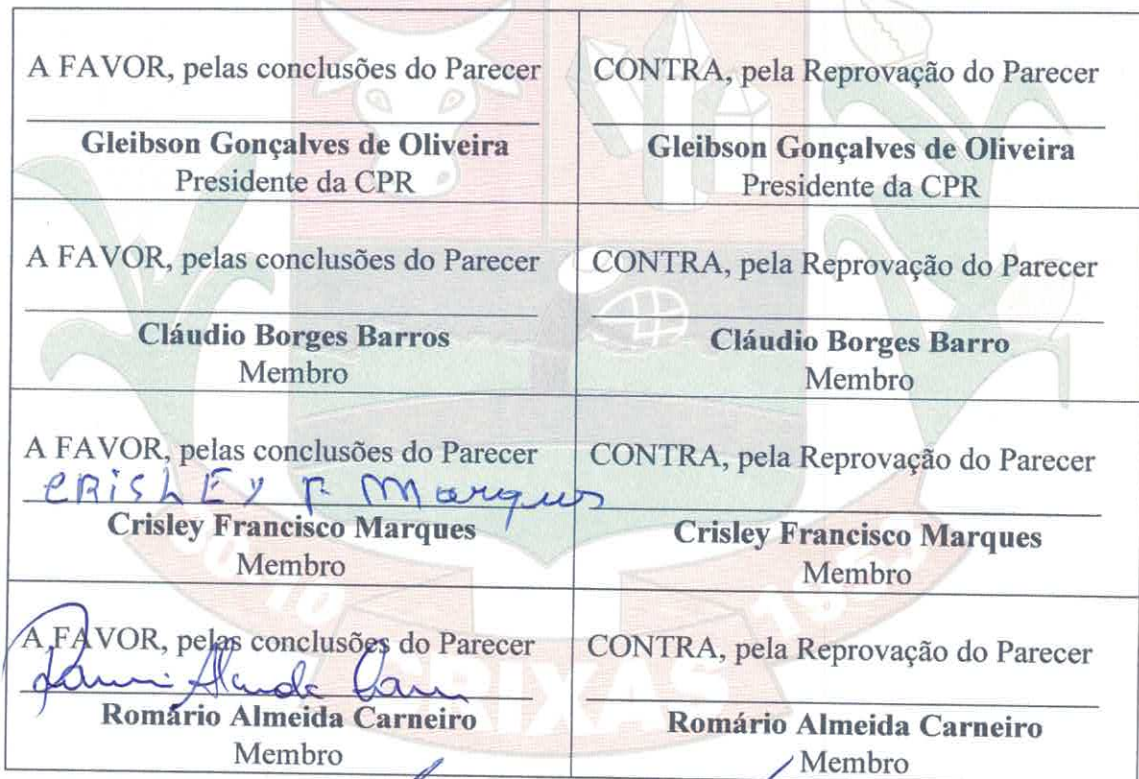 A FAVOR, pelas conclusões do Parecer
Gleibson Gonçalves de Oliveira
Presidente da CPR
CONTRA, pela Reprovação do Parecer
Gleibson Gonçalves de Oliveira
Presidente da CPR
A FAVOR, pelas conclusões do Parecer
Cláudio Borges Barros
Membro
CONTRA, pela Reprovação do Parecer
Cláudio Borges Barro
Membro
A FAVOR, pelas conclusões do Parecer
CRisLEY F Marques
Crisley Francisco Marques
Membro
CONTRA, pela Reprovação do Parecer
Crisley Francisco Marques
Membro
A FAVOR, pelas conclusões do Parecer
Romário Almeida Carneiro
Membro
CONTRA, pela Reprovação do Parecer
Romário Almeida Carneiro
Membro
CRIXAS
1953